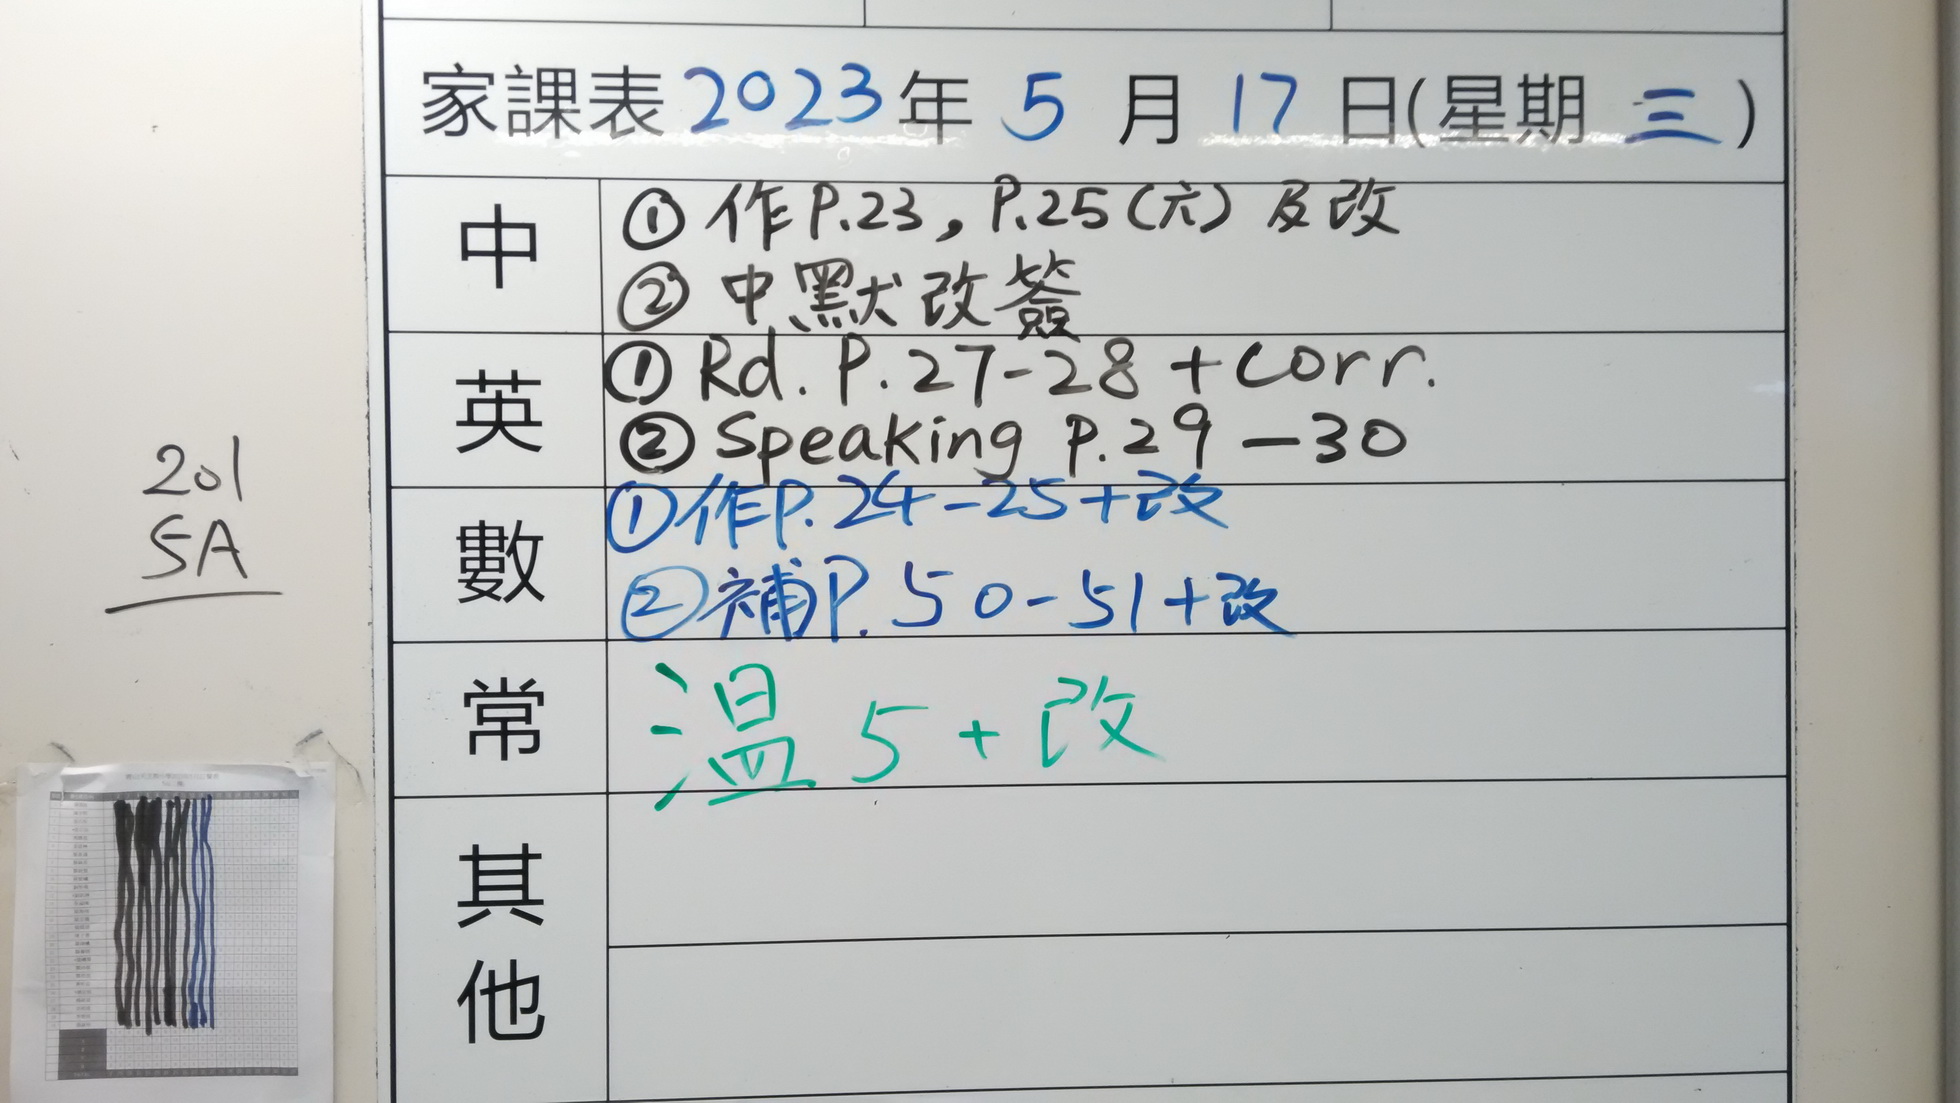 家課表2023年 5 月 17 日(星期 三)
中
① 作P.23, P.25(六) 及改
② 中默改簽
英
① Rd. P. 27-28 + corr.
② Speaking P.29 - 30
數
①作P. 24-25+改
②補P. 50-51+改
常
溫 5 + 改
其他
201
5A